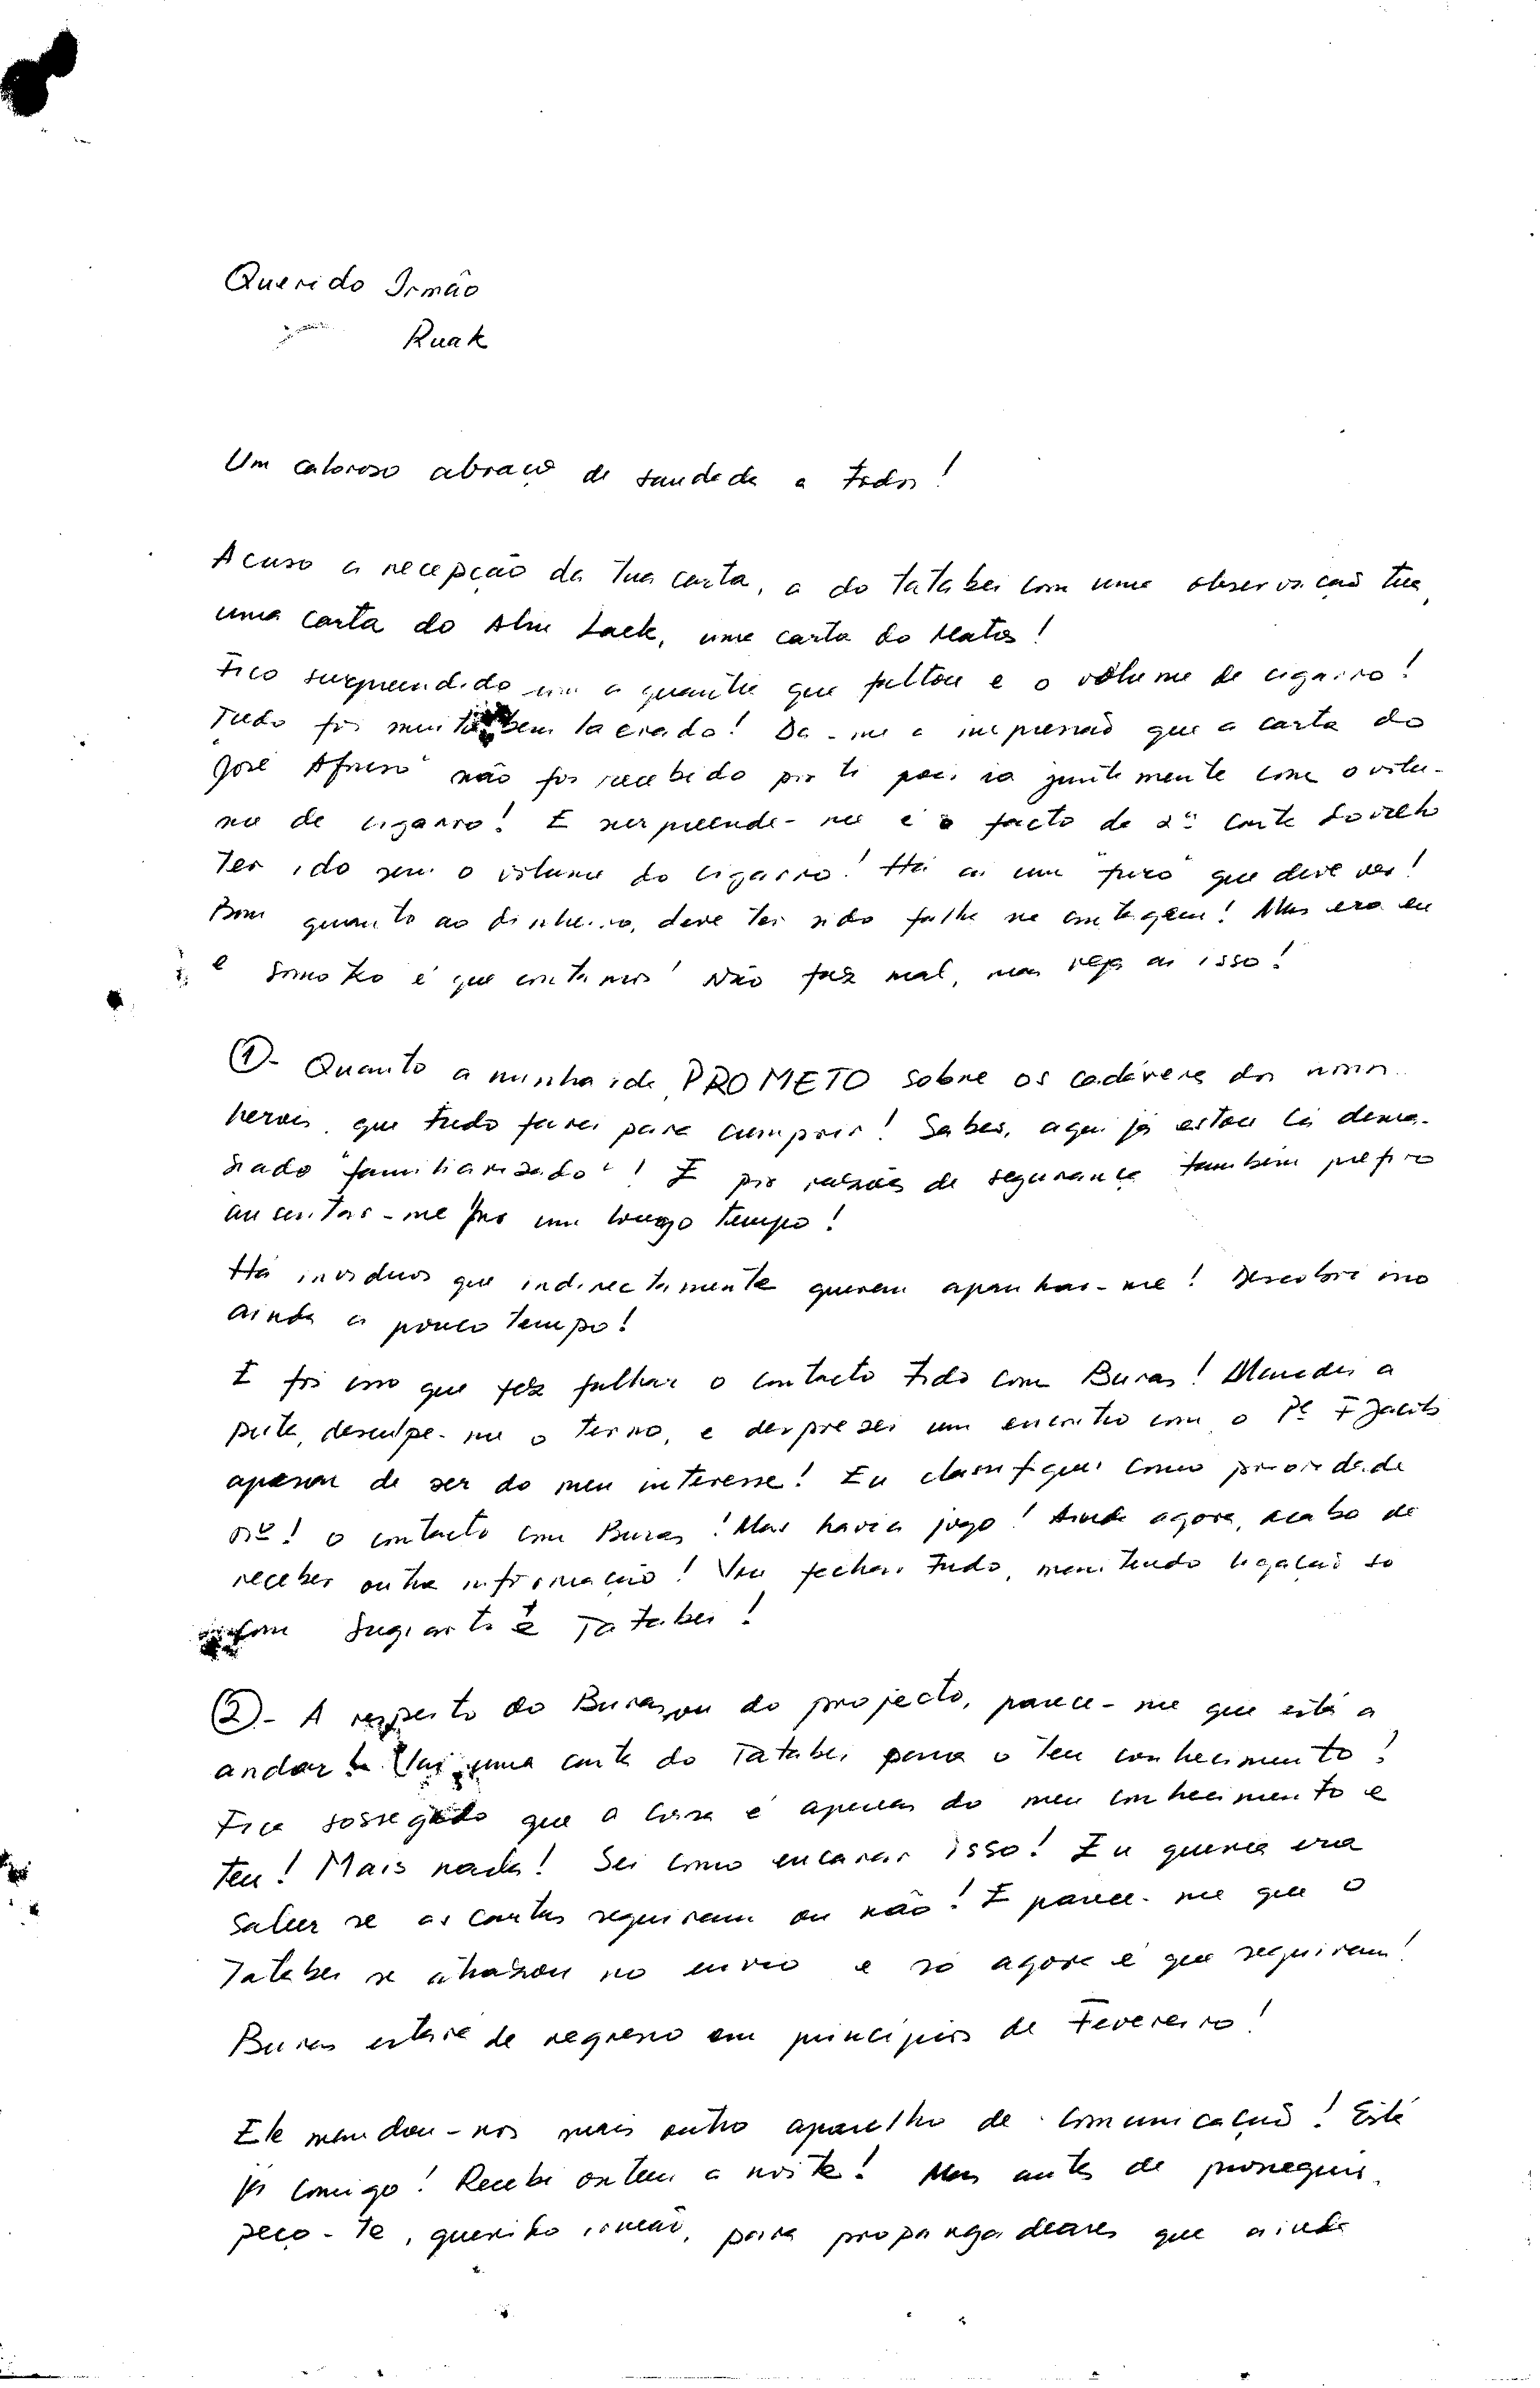 Querido Irmão
Ruak
Um caloroso abraço de saudade a todos!
Acuso a recepção da tua carta, a do Tatabei com uma observação tua,
uma carta do Alm Laek, uma carta do Matos!
Fico surpreendido com a quantia que faltou e o volume de cigarro!
Tudo foi muito bem lacrado! Da-me a impressão que a carta do
José Afonso não foi recebido por ti pois ia juntamente com o volu-
me de cigarro! E surpreende-me é o facto da 2ª carta
ter ido sem o volume do cigarro! Há aí um "furo" que deve ver!
Bom quanto ao dinheiro, deve ter sido falha na contagem! Mas era eu
e Somotxo é que contamos! Não faz mal, mas veja aí isso!
①- Quanto a minha ida, PROMETO sobre os cadáveres dos nossos
herois, que tudo farei para cumprir! Sabes, aqui já estou cá dema-
siado "familiarizado"! E por razões de segurança também prefiro
ausentar-me por um longo tempo!
Há indivíduos que indirectamente querem apanhar-me! Descobri isso
ainda a pouco tempo!
E foi isso que fez falhar o contacto tido com Buras! Mandei a
puta, desculpe-me o termo, e desprezei um encontro com o Pe
apesar de ser do meu interesse! Eu classifiquei como prioridade
nº! o contacto com Buras! Mas havia jogo! Ainda agora, acabo de
receber outra informação! Vou fechar tudo, mantendo ligação so
com Sugiarto e Tatabei!
②- A respeito do Buras, ou do projecto, parece-me que está a
andar! Vai uma carta do Tatabei para o teu conhecimento!
Fica sossegado que a coisa é apenas do meu conhecimento e
teu! Mais nada! Sei como encarar isso! Eu queria era
saber se as cartas seguiram ou não! E parece-me que o
Tatabei se atrazou no envio e so agora é que seguiram!
Buras estará de regresso em principios de Fevereiro!
Ele mandou-nos mais outro aparelho de comunicação! Está
já comigo! Recebi ontem a noite! Mas antes de prosseguir,
peço-te, querido irmão, para propangadeares que ainda